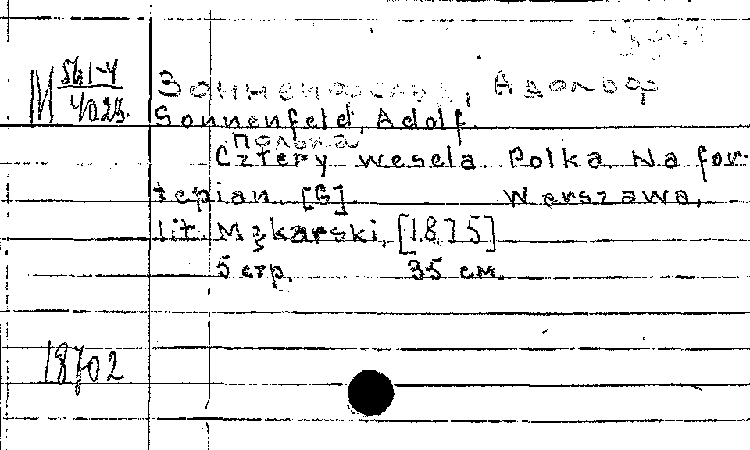 М 561-4
4023
Зонненфельд, Адольф
Sonnenfeld, Adolf.
Полька
Cztery wesela Polka Na for-
tepian [G] Warszawa,
lit. Mękarski, [1875]
5 стр. 35 см.
18702